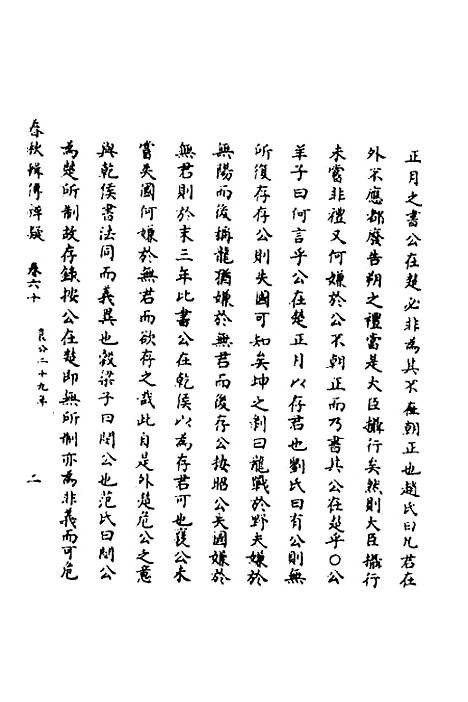 正月之書公在楚必非為其不在朝正也趙氏曰凡君在
外不應都廢告朔之禮當是大臣攝行矣然則大臣攝行
未嘗非禮又何嫌於公不朝正而乃書其公在楚乎○公
羊子曰何言乎公在楚正月以存君也劉氏曰有公則無
所復存存公則失國可知矣坤之剝曰龍戰於野夫嫌於
無陽而後稱龍猶嫌於無君而後存公按昭公失國嫌於
無君則於末三年比書公在乾侯以為存君可也襄公未
嘗失國何嫌於無君而欲存之哉此自是外楚危公之意
與乾侯書法同而義異也穀梁子曰閔公也范氏曰閔公
為楚所制故存錄按公在楚即無所制亦為非義而可危
春秋輯傳辨疑 卷六十 襄公二十九年 二